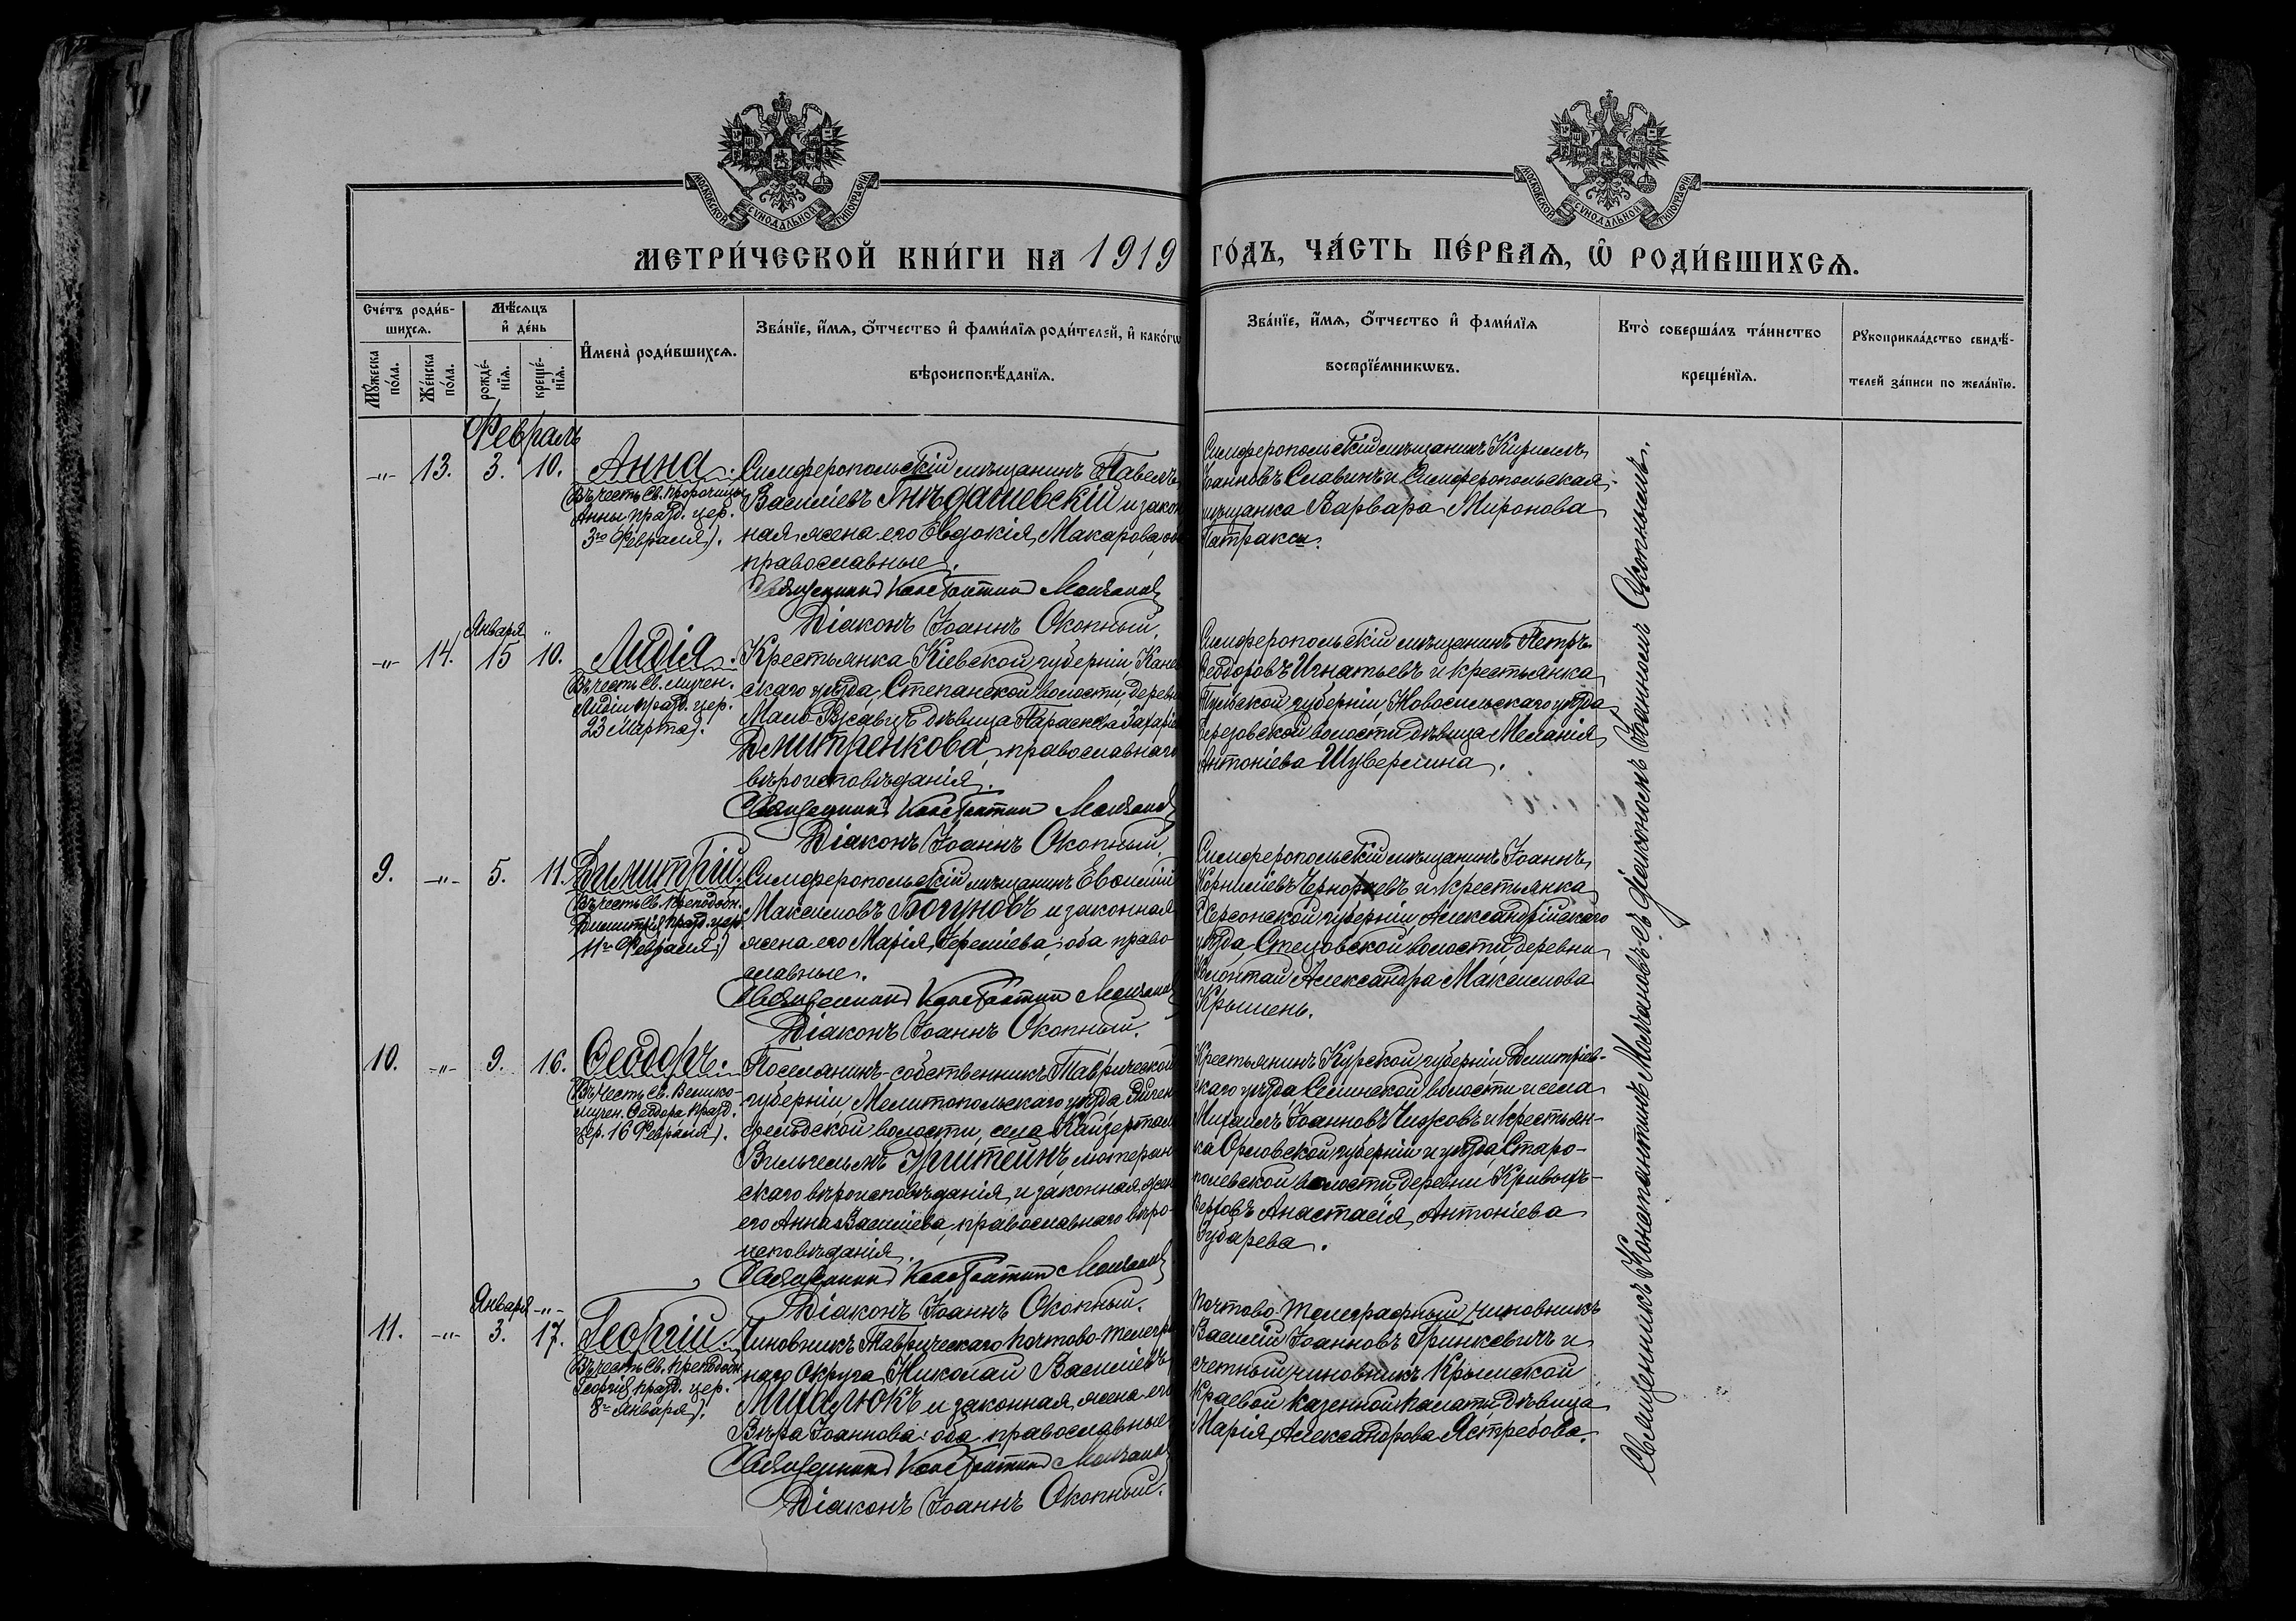 МОСКОВСКОЙ СѴНОДАЛЬНОЙ ТИПОГРАФІИ
МОСКОВСКОЙ СѴНОДАЛЬНОЙ ТИПОГРАФІИ
МЕТРИ́ЧЕСКОЙ КНИ́ГИ НА 1919 ГО́ДЪ, ЧА́СТЬ ПЕ́РВАѦ, Ѽ РОДИ́ВШИХСѦ.
Сче́тъ роди́в-
шихсѧ.
Мѣ́сѧцъ
и҆ де́нь
Мꙋ́жеска
по́ла.
Же́нска
по́ла.
рожде́-
нїѧ.
креще́-
нїѧ.
И҆мена̀ роди́вшихсѧ.
Зва́нїе, и҆́мѧ, ѻ҆́тчество и҆ фами́лїѧ роди́телей, и҆ како́гѡ
вѣроисповѣ́данїѧ.
Зва́нїе, и҆́мѧ, ѻ҆́тчество и҆ фами́лїѧ
воспрїе́мникѡвъ.
Кто̀ соверша́лъ та́инство
креще́нїѧ.
Рꙋкоприкла́дство свидѣ́-
телей за́писи по жела́нїю.
Февраль
-"- 13. 3. 10. Анна.
Въ честь Св. Пророчицы
Анны празд. цер.
3го Февраля).
Симферопольскій мѣщанинъ Павелъ
Василіевъ Гнѣдашевскій и закон
ная жена его Евдокія Макарова, оба
православные.
Священникъ Константинъ Молчановъ
Діаконъ Іоаннъ Окопный.
Симферопольскій мѣщанинъ Кириллъ
Іоанновъ Славинъ и Симферопольская
мѣщанка Варвара Миронова
Патракси.
Января "
-"- 14. 15 10. Лидія.
Въ честь Св. мучен.
Лидіи празд. цер.
23 Марта).
Крестьянка Кіевской губерніи, Канев
скаго уѣзда, Степанской волости, деревни
Мало-Ржавицъ дѣвица Параскева Захаріева
Дмитренкова, православнаго
вѣроисповѣданія.
Священникъ Константинъ Молчановъ
Діаконъ Іоаннъ Окопный
Симферопольскій мѣщанинъ Петръ
Ѳеодоровъ Игнатьевъ и крестьянка
Тульской губерніи, Новосильскаго уѣзда
Березовской волости, дѣвица Меланія
Антоніева Шуверлина.
9. -"- 5. 11. Димитрій.
Въ честь Св. Преподобн.
Димитрія празд. цер.
11го Февраля)
Симферопольскій мѣщанинъ Евѳимій
Максимовъ Богуновъ и законная
жена его Марія Іереміева, оба право-
славные.
Священникъ Константинъ Молчановъ
Діаконъ Іоаннъ Окопный.
Симферопольскій мѣщанинъ Іоаннъ
Корниліевъ и крестьянка
Херсонской губерніи, Александрійскаго
уѣзда, Стецовской волости, деревни
Александра Максимова
Крышень.
10. -"- 9. 16. Ѳеодоръ.
Въ честь Св. Велико-
мучен. Ѳеодора празд.
цер. 16 Февраля).
Поселянинъ-собственникъ Таврической
губерніи, Мелитопольскаго уѣзда, Эйген
фельдской волости, села Кайзерталь
Вильгельмъ лютеран
скаго вѣроисповѣданія, и законная жена
его Анна Василіева, православнаго вѣро-
исповѣданія.
Священникъ Константинъ Молчановъ
Діаконъ Іоаннъ Окопный.
Крестьянинъ Курской губерніи, Дмитріев-
скаго уѣзда волости и села
Михаилъ Іоанновъ Чижовъ и крестьян-
ка Орловской губерніи и уѣзда, Старо-
полевской волости, деревни Кривыхъ-
Верховъ Анастасія Антоніева
Губарева.
Января -"-
11. -"- 3. 17. Георгій.
Въ честь Св. Преподобн.
Георгія празд. цер.
8го Января).
Чиновникъ Таврическаго почтово-телеграф
наго Округа Николай Василіевъ
Мигалюкъ и законная жена его
Вѣра Іоаннова: оба православные
Священникъ Константинъ Молчановъ
Діаконъ Іоаннъ Окопный.
Почтово-Телеграфный чиновникъ
Василій Іоанновъ Гринкевичъ и
счетный чиновникъ Крымской
Краевой Казенной Палаты дѣвица
Марія Александрова Ястребова.
Священникъ Константинъ Молчановъ съ діакономъ Іоанномъ Окопнымъ.